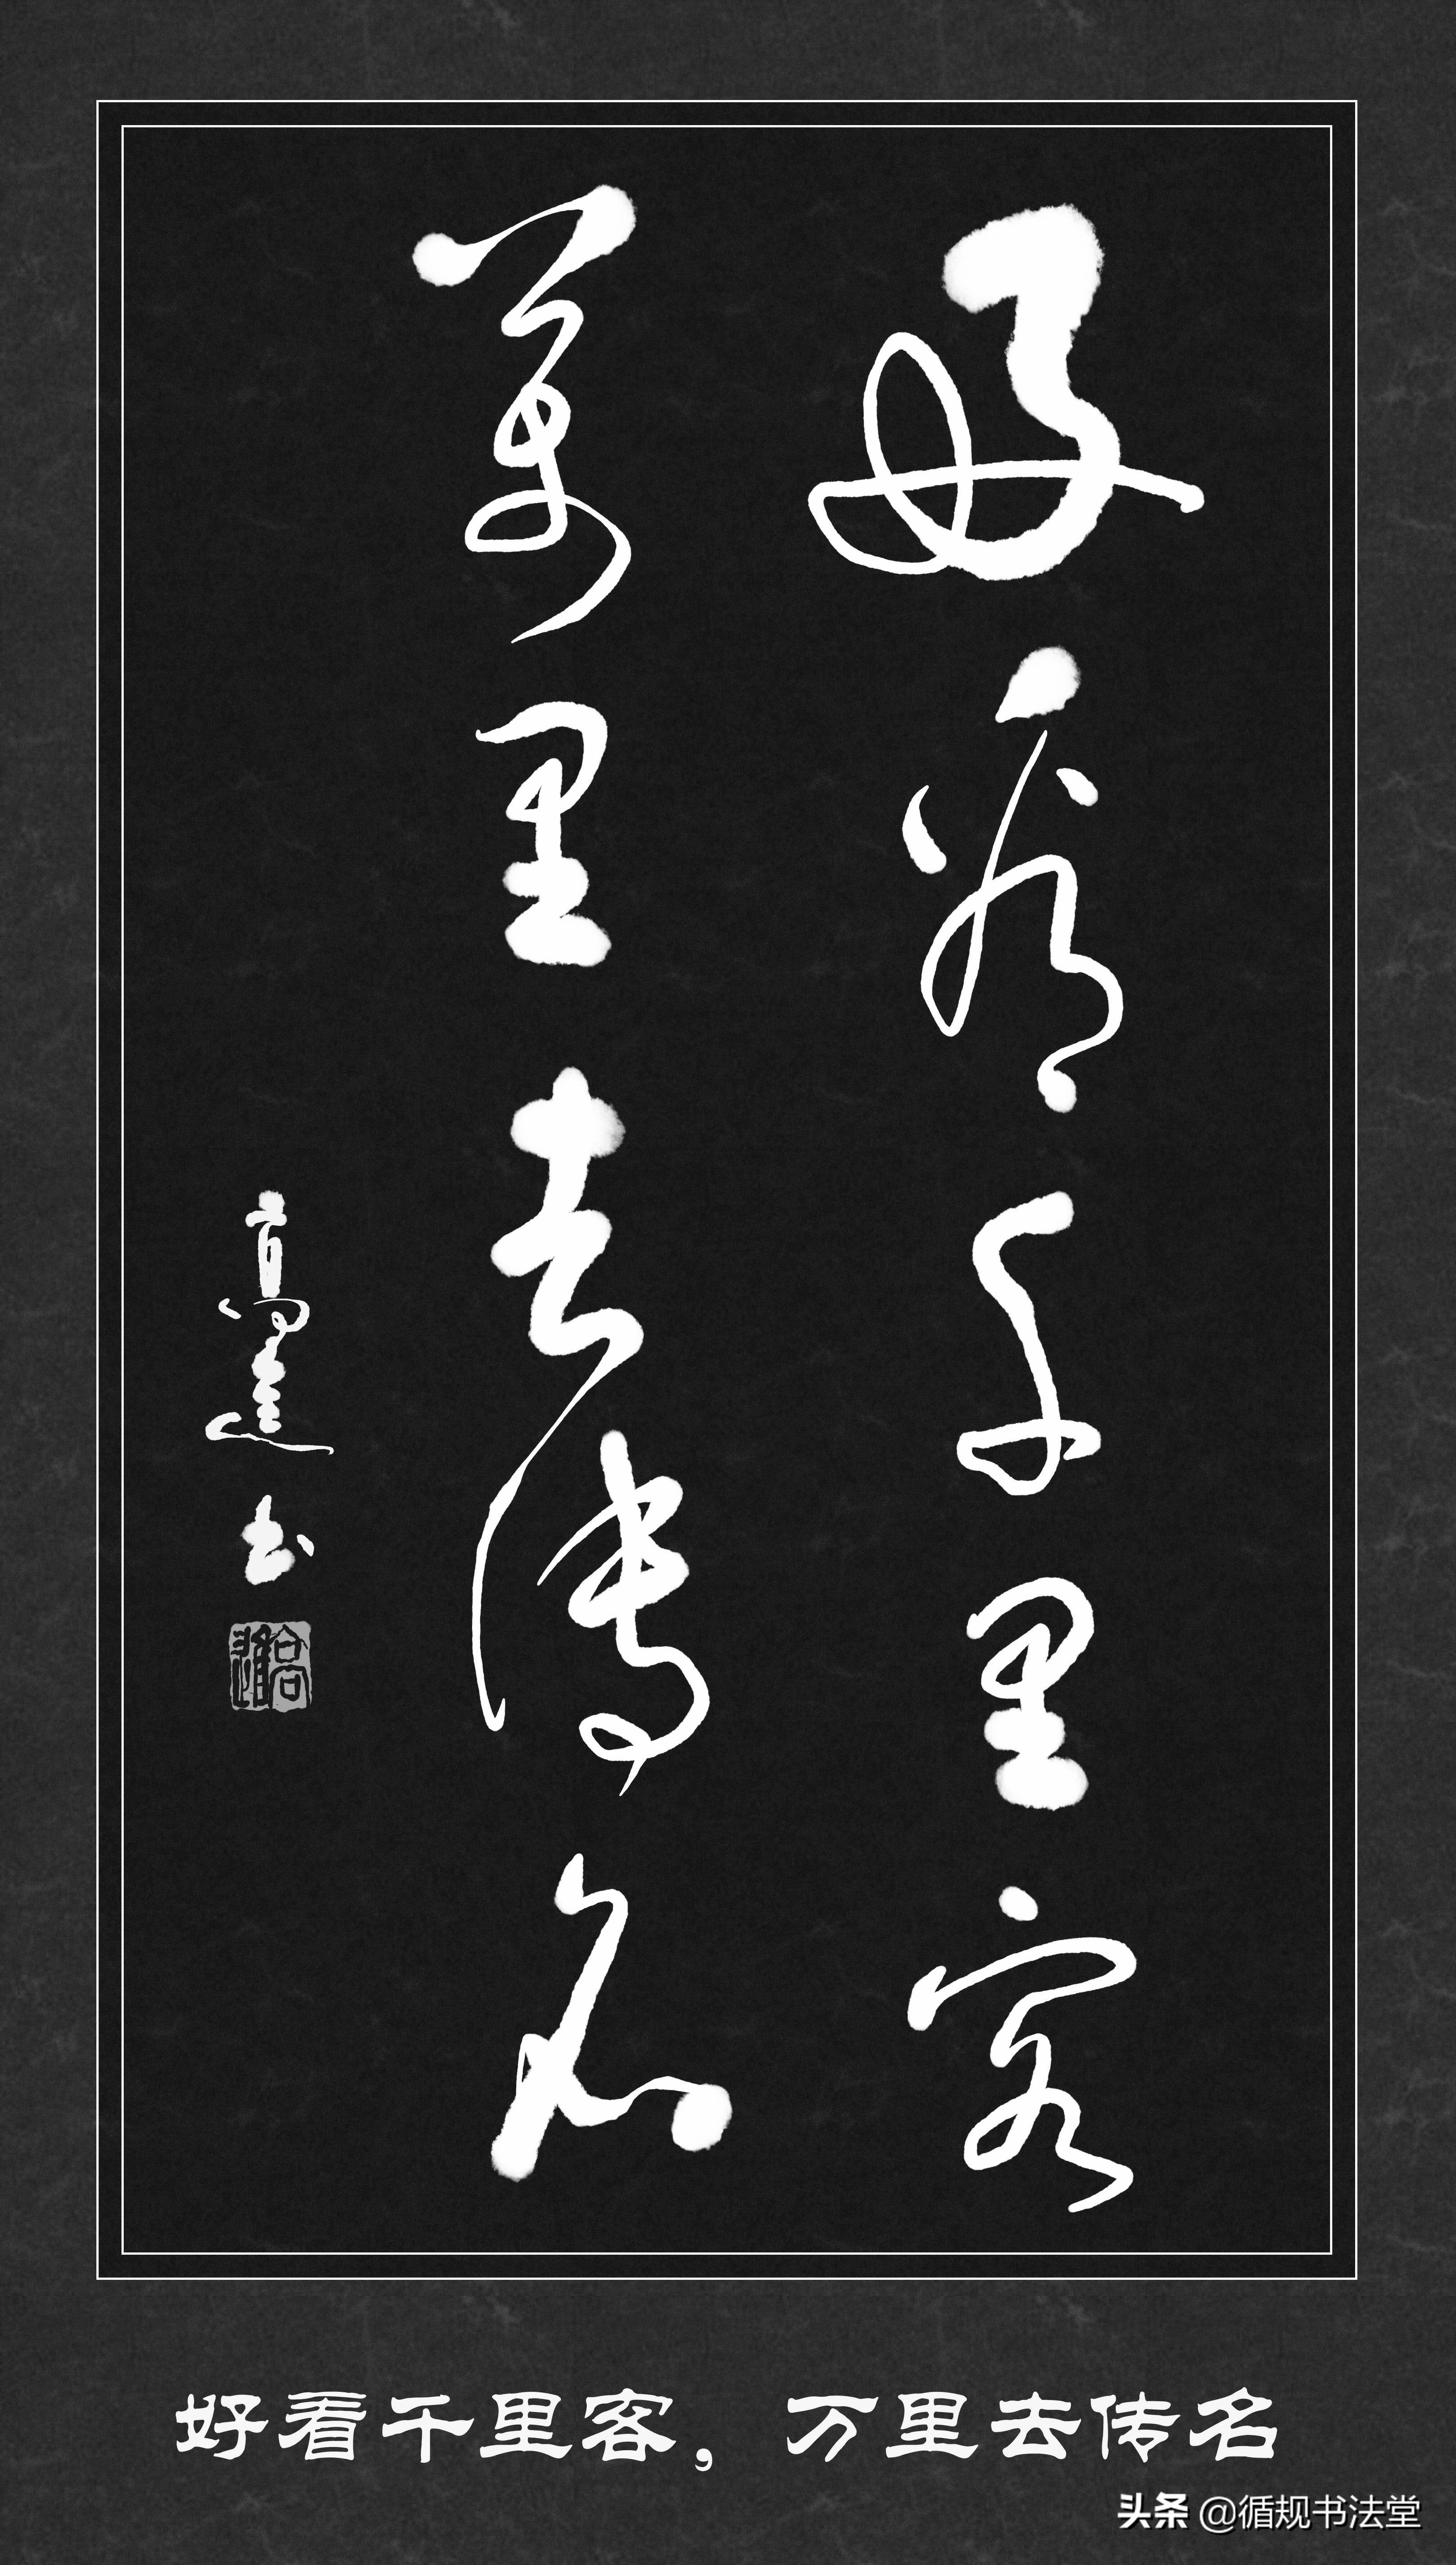 好看千里客
萬里去傳名
高建书
好看千里客，万里去传名
头条 @循规书法堂